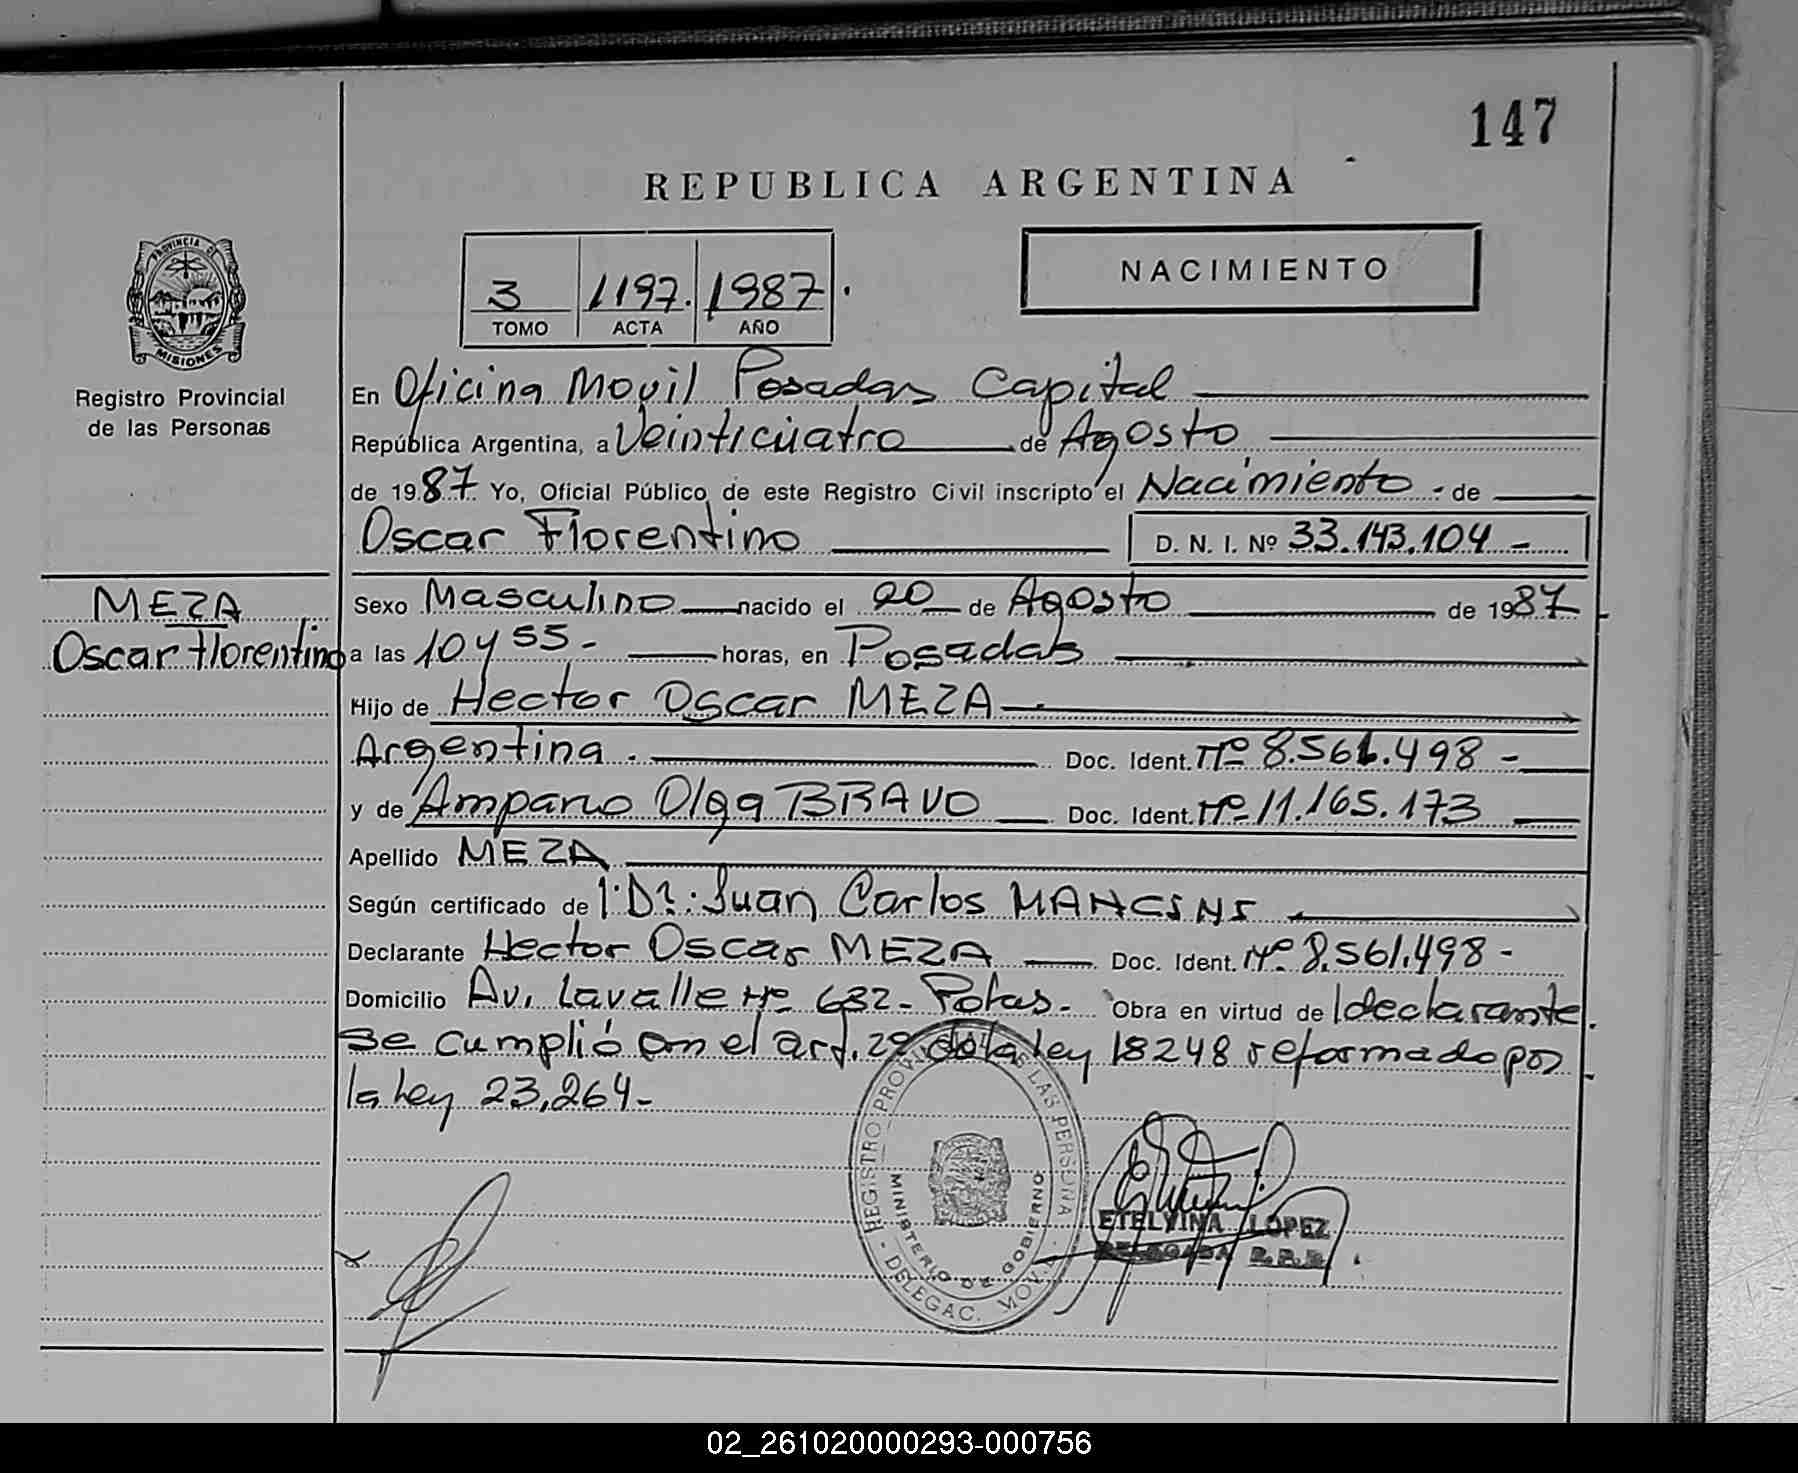 147
REPUBLICA ARGENTINA
3 1197. 1987.
TOMO ACTA AÑO
NACIMIENTO
PROVINCIA DE
MISIONES
Registro Provincial
de las Personas
En Oficina Movil Posadas Capital
República Argentina, a Veinticuatro de Agosto
de 1987 Yo, Oficial Público de este Registro Civil inscripto el Nacimiento. de
Oscar Florentino D. N. I. Nº 33.143.104 -
MEZA
Oscar Florentino
Sexo Masculino nacido el 20 de Agosto de 1987
a las 10 y 55 - horas, en Posadas
Hijo de Hector Oscar MEZA
Argentina. Doc. Ident. Nº 8.561.498 -
y de Amparo Olga BRAVO Doc. Ident. Nº 11.165.173
Apellido MEZA
Según certificado de l: Dr: Juan Carlos MANCINI
Declarante Hector Oscar MEZA Doc. Ident. Nº 8.561.498 -
Domicilio Av. Lavalle Nº 632 - Pdas. Obra en virtud de l declarante.
Se cumplió con el art. 2º de la ley 18248 reformado por
la ley 23,264 -
REGISTRO PROVINCIAL DE LAS PERSONAS
MINISTERIO DE GOBIERNO
- DELEGAC. MOVIL -
ETELVINA LOPEZ
DELEGADA R.P.P.
02_261020000293-000756